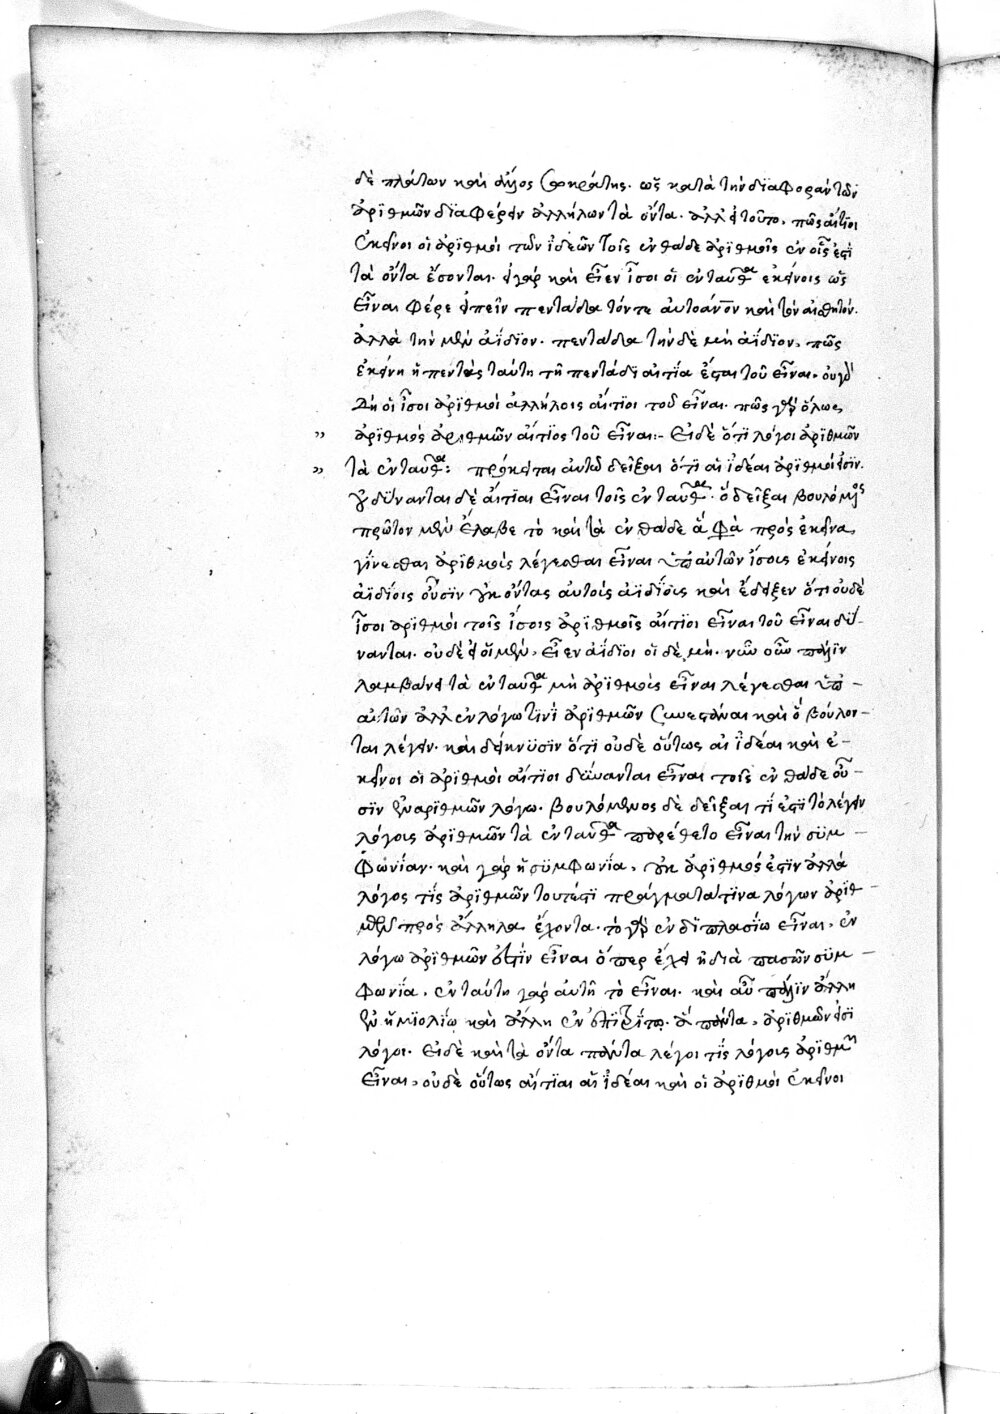 δὲ πλάτων καὶ ἄλλος σωκράτης. ὡς κατὰ τὴν διαφορὰν τῶν
ἀριθμῶν διαφέρειν ἀλλήλων τὰ ὄντα. ἀλλ' εἰ τοῦτο, πῶς αἴτιοι
ἐκεῖνοι οἱ ἀριθμοὶ τῶν ἰδεῶν τοῖς ἐνθάδε ἀριθμοῖς ἐν οἷς ἐστὶ
τὰ ὄντα ἔσονται. εἰ γὰρ καὶ εἶεν ἴσοι οἱ ἐνταῦθα ἐκείνοις ὡς
εἶναι φέρε εἰπεῖν πεντάδα τόν τε αὐτοάνον καὶ τὸν αἰσθητόν.
ἀλλὰ τὴν μὲν ἀΐδιον. πεντάδα τὴν δὲ μὴ ἀΐδιον, πῶς
ἐκείνη ἡ πεντὰς ταύτη τῆ πεντάδι αἰτία ἔσται τοῦ εἶναι. οὐ γὰρ
δὴ οἱ ἴσοι ἀριθμοὶ ἀλλήλοις αἴτιοι τοῦ εἶναι. πῶς γὰρ ὅλως
ἀριθμὸς ἀριθμῶν αἴτιος τοῦ εἶναι:- Εἰ δὲ ὅτι λόγοι ἀριθμῶν
τὰ ἐνταῦθα: πρόκειται αὐτῶ δεῖξαι ὅτι αἱ ἰδέαι ἀριθμοί εἰσιν.
οὐ δύνανται δὲ αἴτιαι εἶναι τοῖς ἐνταῦθα. ὃ δεῖξαι βουλόμενος
πρῶτον μὲν ἔλαβε τὸ καὶ τὰ ἐνθάδε ἃ πρὸς ἐκεῖνα
γίνεσθαι ἀριθμοὺς λέγεσθαι εἶναι ὑπ' αὐτῶν ἴσοις ἐκείνοις
ἀϊδίοις οὖσιν οὐκ ὄντας αὐτοὺς ἀϊδίους καὶ ἔδειξεν ὅτι οὐδὲ
ἴσοι ἀριθμοὶ τοῖς ἴσοις ἀριθμοῖς αἴτιοι εἶναι τοῦ εἶναι δύ-
νανται. οὐδὲ εἰ οἱ μὲν, εἶεν ἀΐδιοι οἱ δὲ μή. νῦν οὖν πάλιν
λαμβάνει τὰ ἐνταῦθα μὴ ἀριθμοὺς εἶναι λέγεσθαι ὑπ' -
αὐτῶν ἀλλ' ἐν λόγω τινὶ ἀριθμῶν συνεστάναι καὶ ὃ βούλον-
ται λέγειν. καὶ δείκνυσιν ὅτι οὐδὲ οὕτως αἱ ἰδέαι καὶ ἐ-
κεῖνοι οἱ ἀριθμοὶ αἴτιοι δύνανται εἶναι τοῖς ἐνθάδε οὖ-
σιν ἐν ἀριθμῶν λόγω. βουλόμενος δὲ δεῖξαι τί ἐστι τὸ λέγειν
λόγοις ἀριθμῶν τὰ ἐνταῦθα παρέθετο εἶναι τὴν συμ-
φωνίαν. καὶ γὰρ ἡ συμφωνία, οὐκ ἀριθμός ἐστιν ἀλλὰ
λόγος τὶς ἀριθμῶν τουτέστι πράγματα τινα λόγων ἀριθ-
μῶν πρὸς ἄλληλα ἔχοντα. τὸ γὰρ ἐν διπλασίω εἶναι, ἐν
λόγω ἀριθμῶν ἐστὶν εἶναι ὅπερ ἔχει ἡ διὰ πασῶν συμ-
φωνία. ἐν ταύτη γὰρ αὐτῆ τὸ εἶναι. καὶ αὖ πάλιν ἄλλη
ἐν ἡμιολίω καὶ ἄλλη ἐν ἐπιτρίτω. ἃ πάντα, ἀριθμῶν εἰσὶ
λόγοι. Εἰ δὲ καὶ τὰ ὄντα πάντα λέγοι τίς λόγοις ἀριθμῶν
εἶναι, οὐδὲ οὕτως αἴτιαι αἱ ἰδέαι καὶ οἱ ἀριθμοὶ ἐκεῖνοι